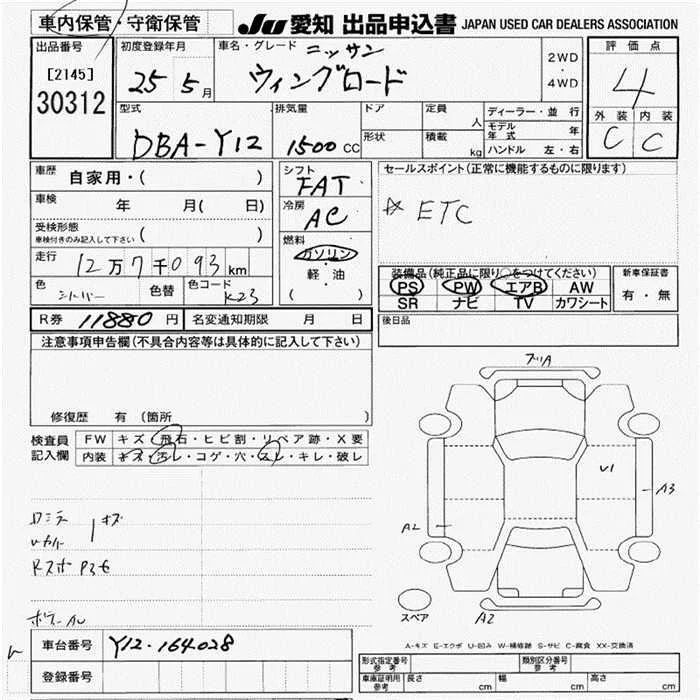 車内保管・守衛保管 JU 愛知 出品申込書 JAPAN USED CAR DEALERS ASSOCIATION
出品番号 初度登録年月 車名・グレード ニッサン 評価点
[2145] 25 5月 ウィングロード 2WD・4WD 4
30312 外装 内装
C C
型式 排気量 ドア 定員 人 ディーラー・並行
DBA-Y12 1500CC 形状 積載 kg モデル年式 年
ハンドル 左・右
車歴 自家用・( ) シフト FAT セールスポイント(正常に機能するものに限ります)
車検 年 月( 日) 冷房 AC ☆ ETC
受検形態 車検付きのみ記入して下さい ( )
燃料 ガソリン・軽油 ( )
走行 12万7千093km
装備品(純正品に限り○をつけてください) 新車保証書
PS PW エアB AW 有・無
SR ナビ TV カワシート
色 シルバー 色替 色コード K23
R券 11880円 名変通知期限 月 日 後日品
注意事項申告欄(不具合内容等は具体的に記入して下さい)
修復歴 有(箇所
検査員記入欄 FW キズ・飛石・ヒビ割・リペア跡・X要
内装 キズ・汚レ・コゲ・穴・スレ・キレ・破レ
U1
A3
A2
キズ
スペア A2
A-キズ E-エクボ U-凹み W-補修跡 S-サビ C-腐食 XX-交換済
車台番号 Y12-164028
登録番号
形式指定番号 参考 類別区分番号 参考
車庫証明用 参考 長さ cm 幅 cm 高さ cm